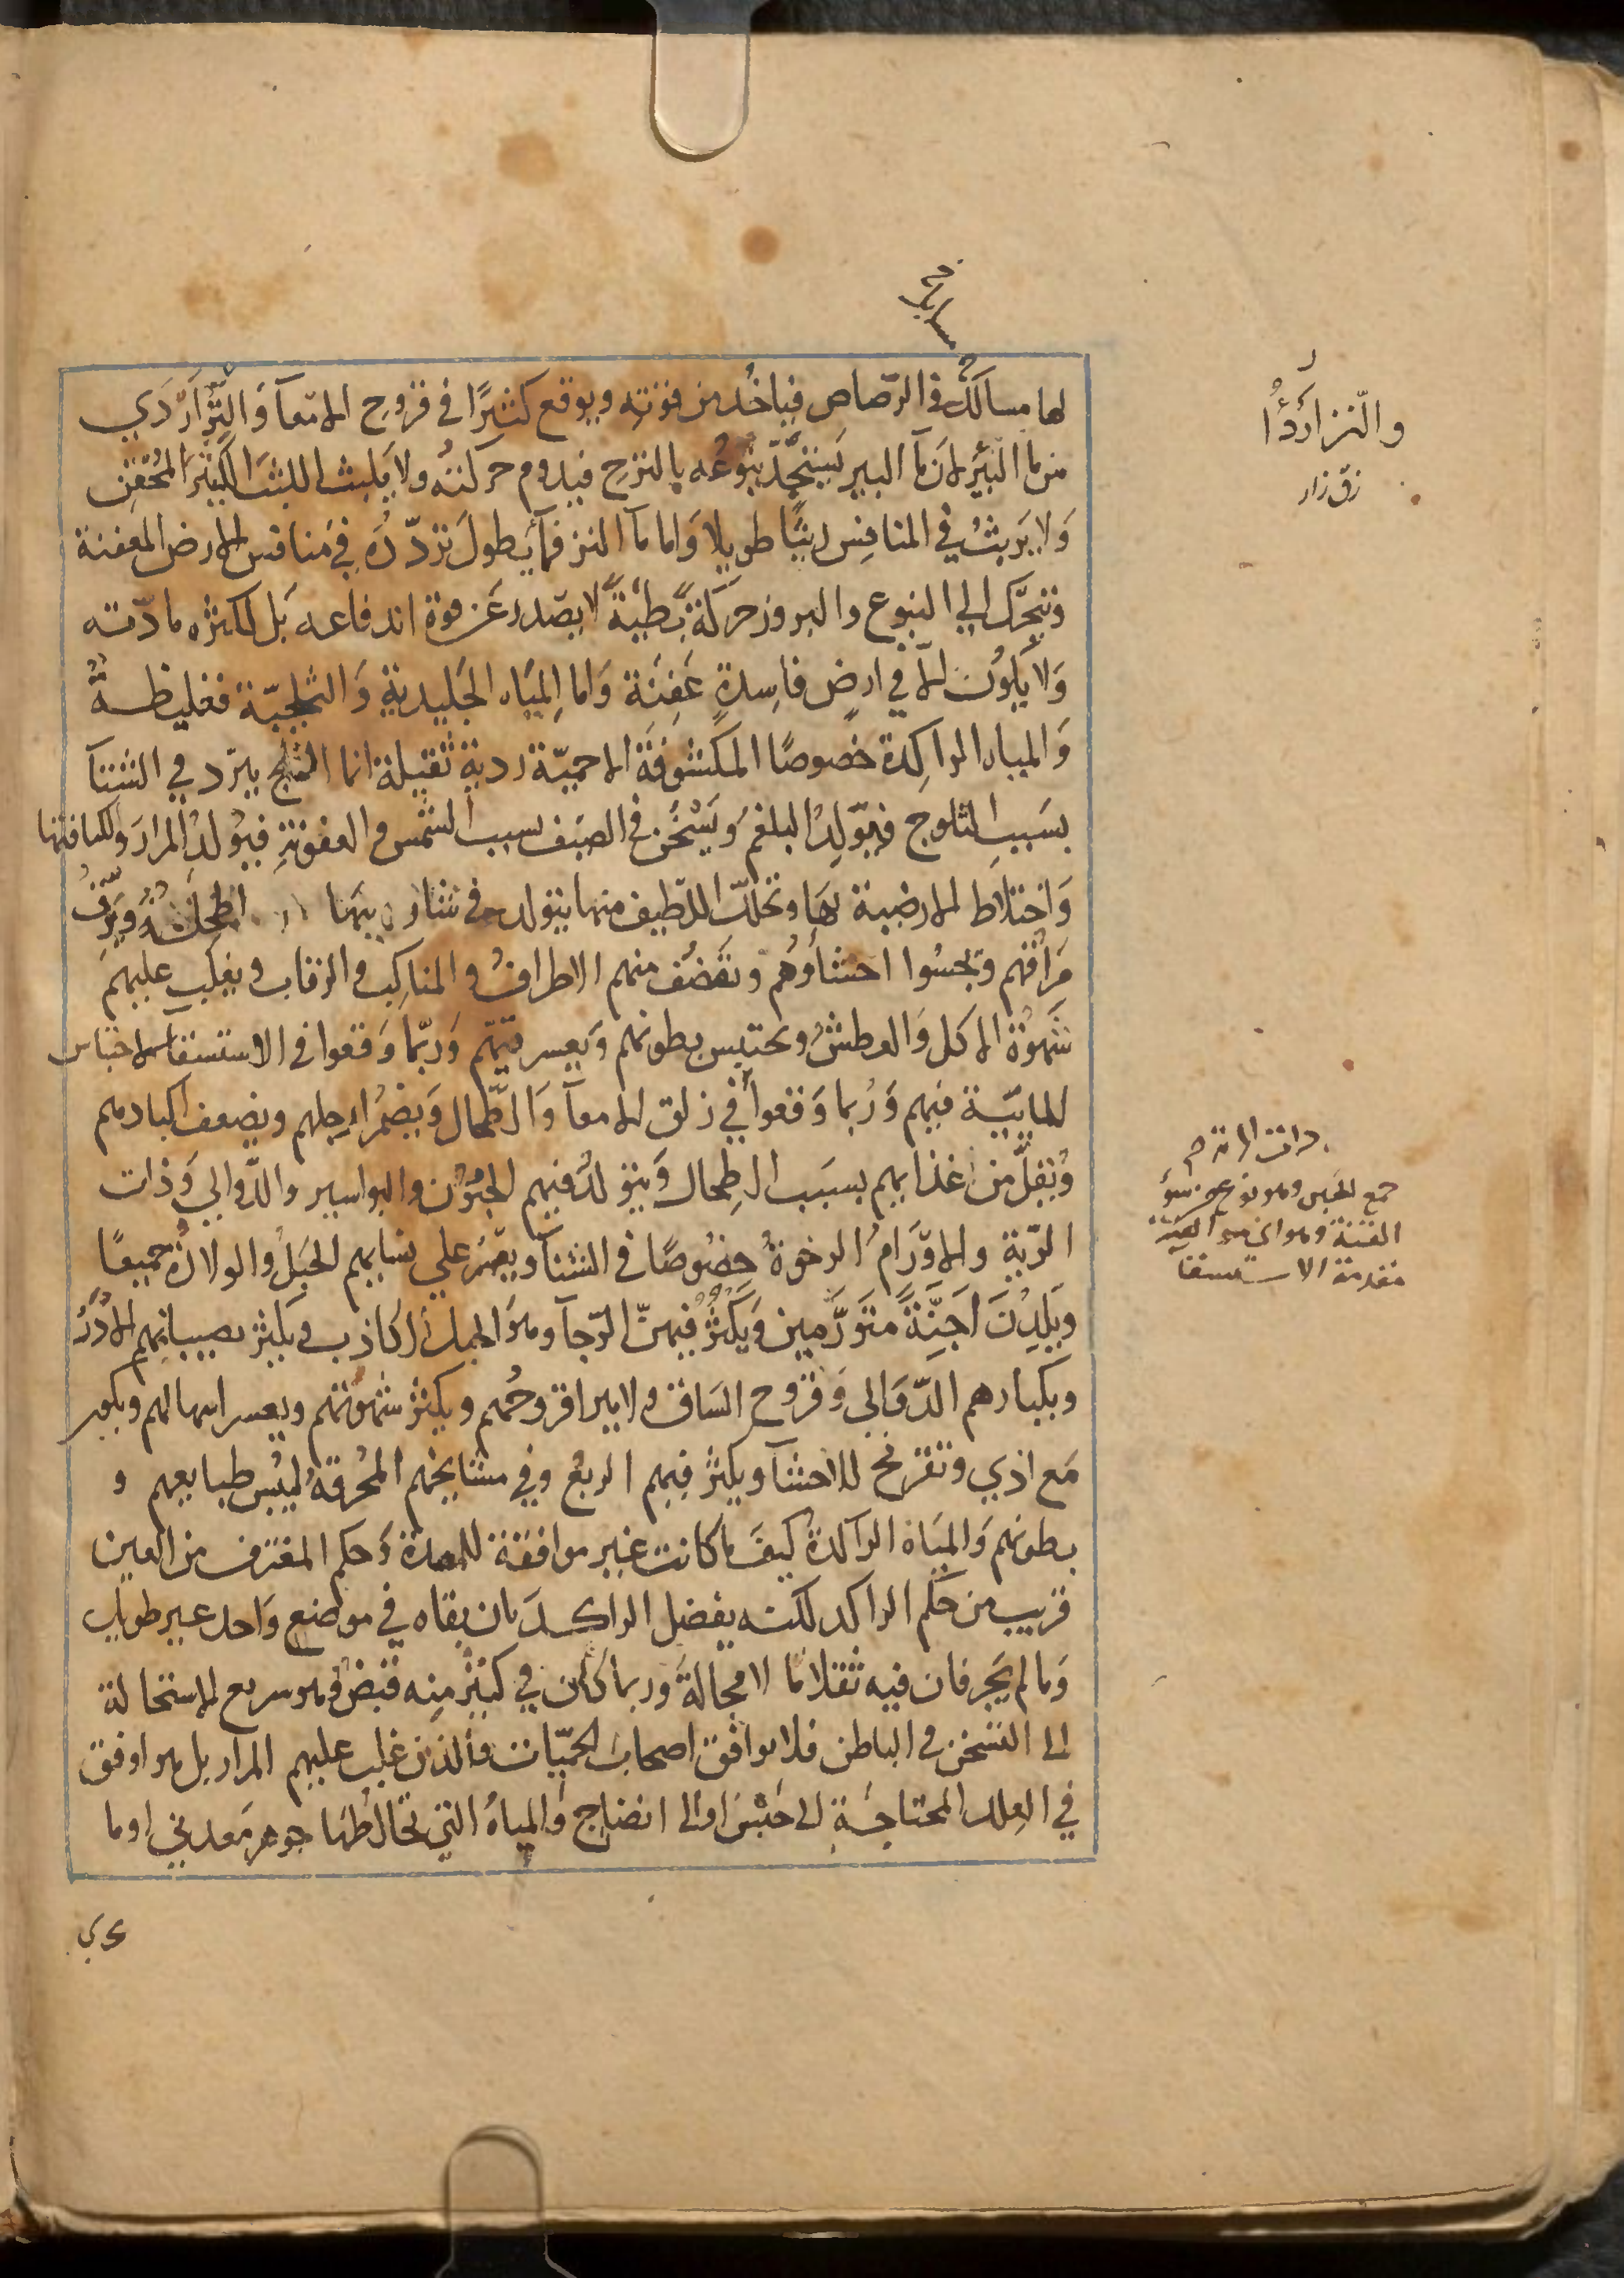 لها مسالك في الرصاص فياخذ من قوته ويوقع كثيرًا في قروح الامعآ والنَّزّ اردي
من ما البئر لان مآ البير يستجدّ نبوعُه بالنزح فيدوم حركته ولا يلبث اللبث الكثير المحقن
وَلا يَريثُ في المنافِس ريثًا طويلا وَاما مآ النز فمآ يطول تردّدُه في مَنافس الارض المعفنة
وتتحرّك الي النبوع والبروز حركةً بطيّةً لا يصدر عَن قوة اندفاعه بَل لكثرة مادّته
وَلا يكون الا في ارضٍ فاسِدةٍ عَفِنَة وَاما المِيَاه الجَليدية وَالثلجيّة فغليظـةٌ
وَالمياه الراكِدة خصوصًا المكشوفَة الاجميّة ردية ثقيلة انما الثلج يبرّد في الشتآ
بسَببِ الثلوج فيوّلِدُ البلغمُ وَيَسْخُن في الصيَف بسبب الشمس والعفونةِ فيوْلدُ المرارَ ولكثافتها
وَاختلاط الارضية بهَا وتحلّل اللطيف منها يتولد في شاربيهَا اطحِلَةٌ ويَرِقّ
مَراقهم وتجسُوا احشاؤهُم وتقضُف منهم الاطرافُ والمناكِبُ والرقاب ويغلب عليهم
شَهوةُ الاكل وَالعطشُ وتحتبس بطونهم وَيَعسر قيّهم وَربّما وَقعوا في الاستسقآ لاحتباس
المائيّة فيهم وَرُبما وَقعوا في زلق الامعآ وَالطّحال وَيضمُر ارجلهم ويضعف اكبادهم
وُيقلّ من اغذايهم بسبَب الطِحال وَيتولدُ فيهم الجنون والبواسير والدّوالي وَذات
الرّية والاوَرَامُ الرخوةُ خصُوصًا في الشتآ ويعْسرُ علي نسايهم الحَبَلُ والولادةُ جميعًا
ويَلِدْنَ اجنَّةً متَوَرَّمين وَيكثُرُ فيهنّ الرّجآ وهوَ الحبل الكاذب ويكثر بصبيانهم الادَرُ
وبكبارهم الدّوَالي وَقروح السَاق ولا يبرا قروحُهم ويكثر شهوتهم ويعسر اسهالهم ويكون
مَع اذي وتقرّح للاحشآ ويكثر فيهم الربع وفي مشايخهم المُحرقةُ ليُبْسِ طبايعهم و
بطونهم وَالميَاه الراكدةُ كيفَ ما كانت غير موافقة للمعدة وَحكم المغترف من العين
قريب من حُكم الراكد لكنه يفضل الراكـدَ بان بقاه في موضع وَاحد غير طويل
وَما لم يَجر فان فيه ثقلا مّا لا محالةَ وربما كان في كثيْر منِه قبضٌ وهو سريع الاستحالة
الى التسخن في الباطن فلا يوافق اصحابَ الحميّات والذين غلب عليهم المرار بل هو اوفق
في العِلل المحتاجَةِ الى حَبْسَ او الى انضاج والمياهُ التي تخالطهَا جوهر مَعدني او ما
والنّز اَردَؤُ
جمع الحبس وهو نوع من سوُ
القنية
مقدمة الاستسقآ